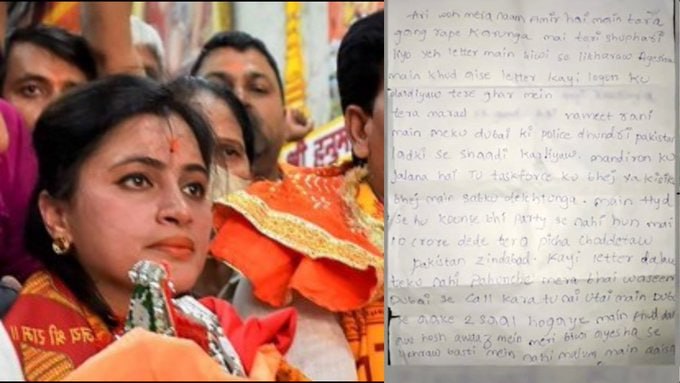 श्री हनुमा
Ari woh mera naam Amir hai main tera
gang rape karunga mai teri shuphari
liyo yeh letter main biwi se likharaw Ayesha
main khud aise letter kayi logon ku
daldiyaw tere ghar mein
tera marad ravneet rani
main meku dubai ki police dhundrii pakistan
ladki se shaadi karliyaw. mandiron ku
jalana hai Tu taskforce ku bhej ya kisiku
bhej main sabku dekhlunga. main Hyd
se hu kpense bhi party se nahi hun mai
10 crore dede tera picha chaddetaw
Pakistan zindabad. Kayi letter dalaw
teku nahi pahunche mera bhai waseem
Dubai se call kara tu nai utai main Dubai
se aake 2 saal hogaye main khud dal
hosh awaaz mein meri biwi ayesha se
basti mein nahi malum main aaisa